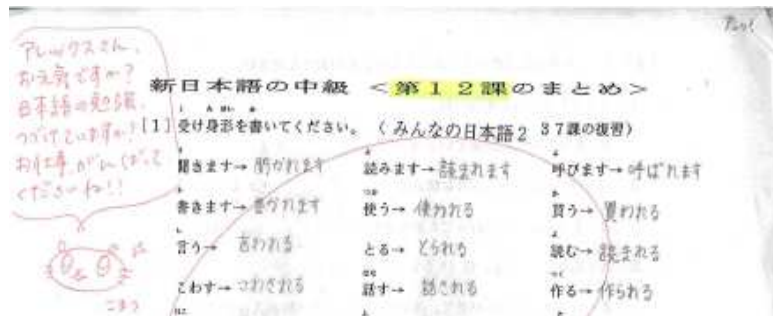 アレックスさん、
お元気ですか?
日本語の勉強、
つづけていますか?
お仕事、がんばって
くださいね!!
新日本語の中級 <第12課のまとめ>
[1] 受け身形を書いてください。 (みんなの日本語2 37課の復習)
聞きます→ 聞かれます 読みます→ 読まれます 呼びます→ 呼ばれます
書きます→ 書かれます 使う→ 使われる 買う→ 買われる
言う→ 言われる とる→ とられる 読む→ 読まれる
こわす→ こわされる 話す→ 話される 作る→ 作られる